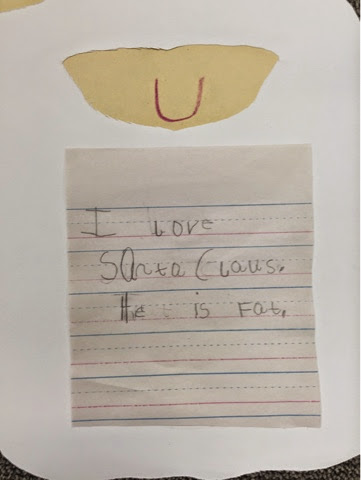 I Love
SANta Claus.
He is Fat.